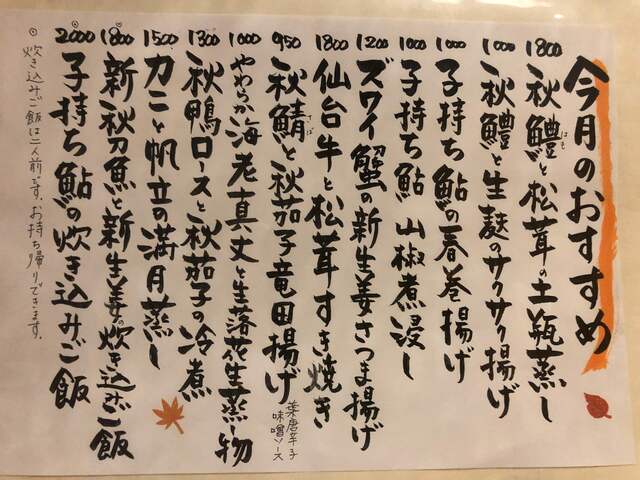 今月のおすすめ
1800 秋鱧と松茸の土瓶蒸し
はも
1000 秋鱧と生麩のサクサク揚げ
1000 子持ち鮎の春巻揚げ
1000 子持ち鮎 山椒煮浸し
1200 ズワイ蟹の新生姜さつま揚げ
1800 仙台牛と松茸すき焼き
950 秋鯖と秋茄子竜田揚げ
さば
葉唐辛子
味噌ソース
1000 やわらか海老真丈と生落花生蒸し物
1300 秋鴨ロースと秋茄子の冷煮
1500 カニと帆立の満月蒸し
1800 新秋刀魚と新生姜の炊き込みご飯
2000 子持ち鮎の炊き込みご飯
◎炊き込みご飯は二人前です。お持ち帰りできます。